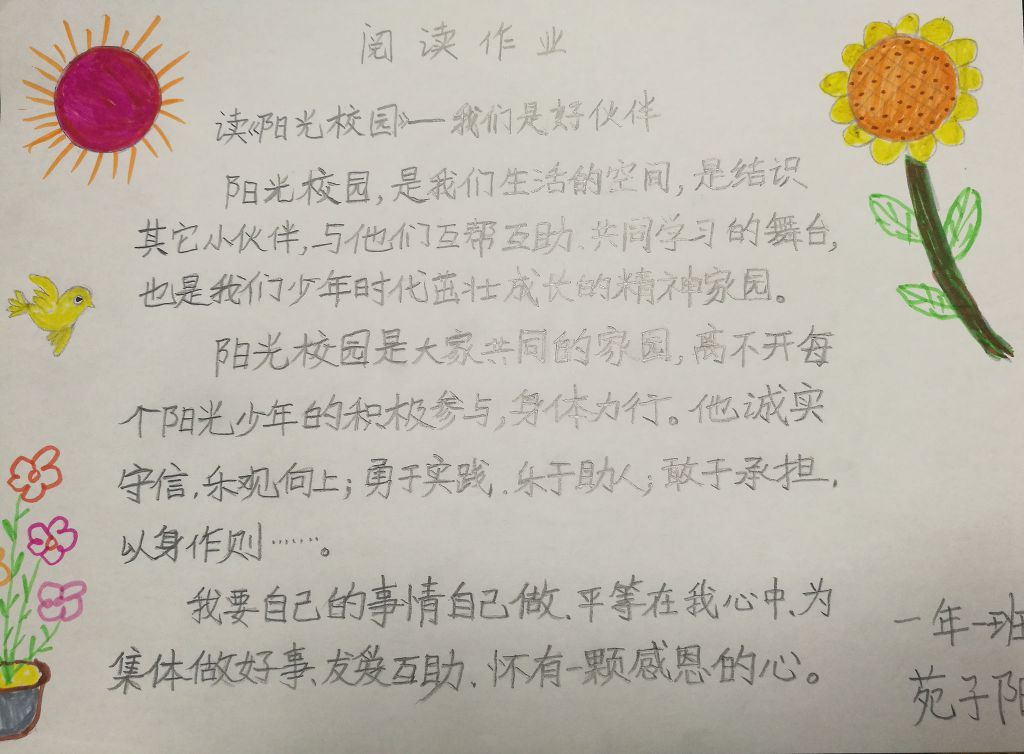 阅读作业
读《阳光校园》—我们是好伙伴
阳光校园,是我们生活的空间,是结识
其它小伙伴,与他们互帮互助、共同学习的舞台,
也是我们少年时代茁壮成长的精神家园。
阳光校园是大家共同的家园,离不开每
个阳光少年的积极参与,身体力行。他诚实
守信,乐观向上;勇于实践、乐于助人;敢于承担,
以身作则……。
我要自己的事情自己做、平等在我心中、为
集体做好事、友爱互助、怀有一颗感恩的心。
一年一班
苑子阳